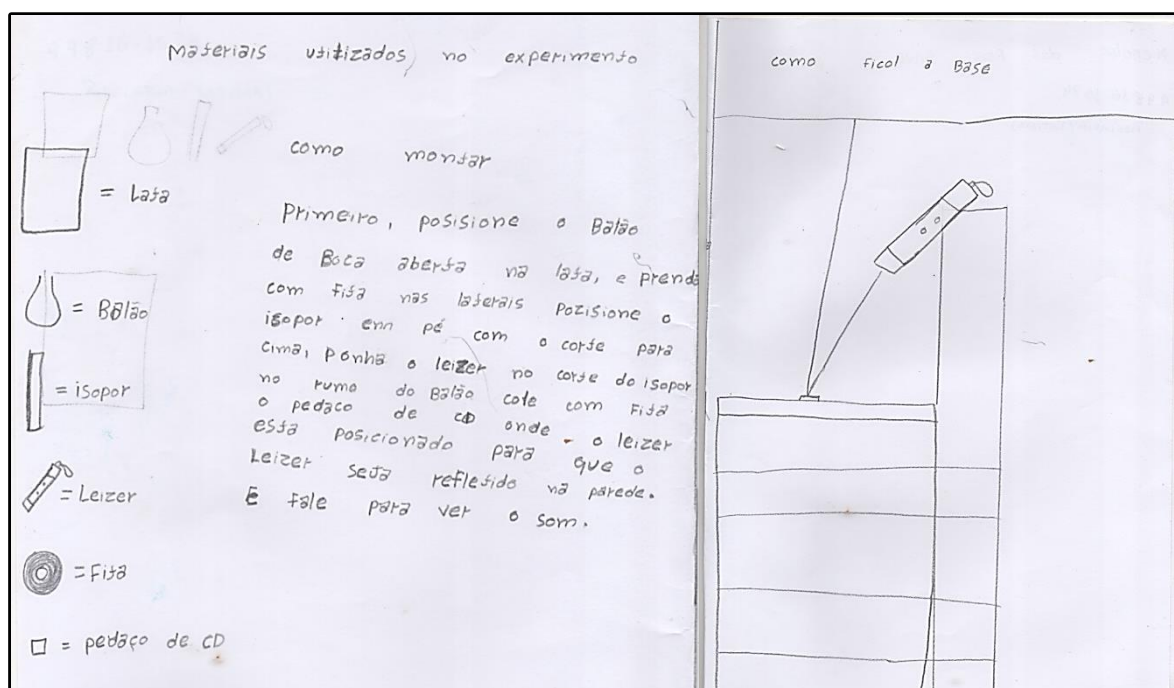 Materiais utilizados no experimento
= Lata
= Balão
= isopor
= Leizer
= Fita
= pedaço de CD
como montar
Primeiro, posisione o Balão
de Boca aberta na lata, e prenda
com fita nas laterais pozisione o
isopor enn pé com o corte para
cima, ponha o leizer no corte do isopor
no rumo do Balão cole com Fita
o pedaco de CD onde o leizer
esta posicionado para que o
Leizer seja refletido na parede.
E fale para ver o som.
como ficol a Base